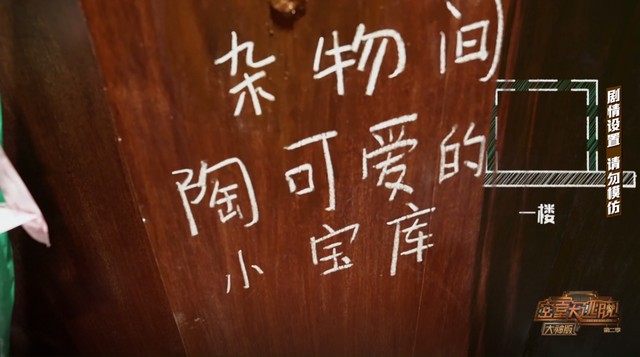 杂物间
陶可爱的
小宝库
剧情设置 请勿模仿
一楼
密室大逃脱
大神版
第二季